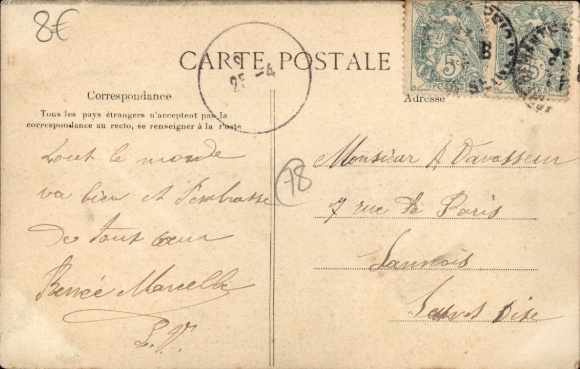 8€
CARTE POSTALE
25 -4
5c
5c
B
Correspondance
Adresse
Tous les pays étrangers n'acceptent pas la
correspondance au recto, se renseigner à la Poste
Tout le monde
va bien et t'embrasse
de tout cœur
Renée Marcelle
L.V.
78
Monsieur A Vavasseur
7 rue de Paris
Sannois
Seine et Oise